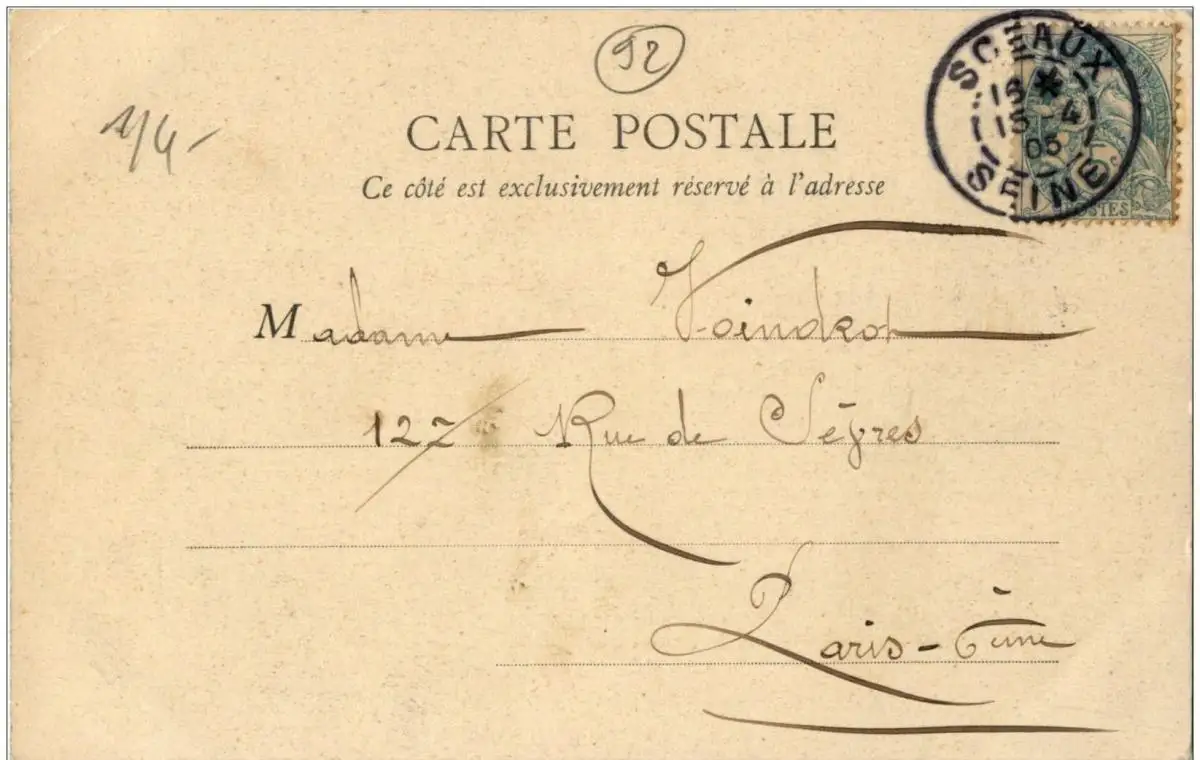 92
1/4-
CARTE POSTALE
Ce côté est exclusivement réservé à l'adresse
SCEAUX
16 *
15 -4
05
SEINE
POSTES
Madame Voindrot
127 Rue de Sèvres
Paris-6ème